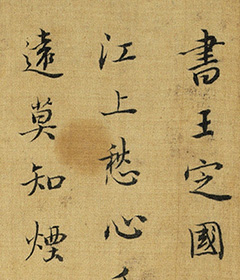 書王定國
江上愁心
遠莫知煙